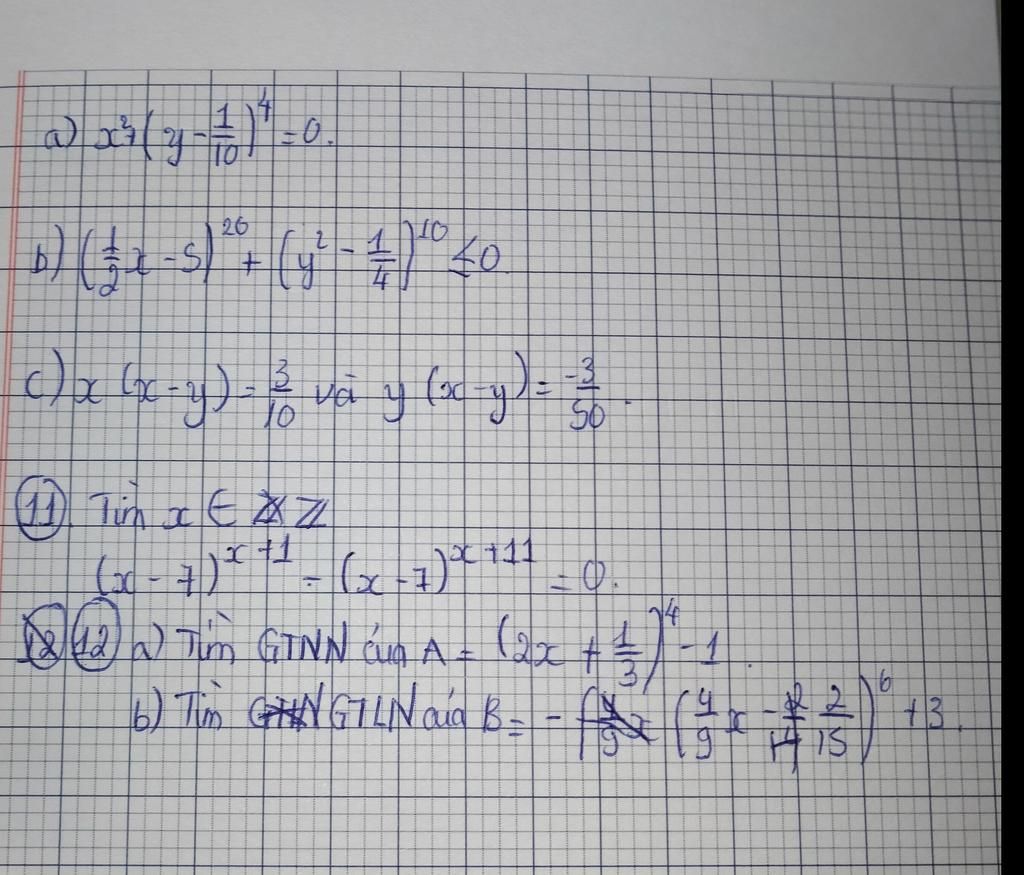 a) x² + (y - 1/10)⁴ = 0.
b) (1/2 x - 5)²⁰ + (y² - 1/4)¹⁰ ≤ 0
c) x (x - y) = 3/10 và y (x - y) = -3/50.
11. Tìm x ∈ Z
(x - 7)^(x+1) - (x - 7)^(x+11) = 0.
12 a) Tìm GTNN của A = (2x + 1/3)⁴ - 1.
b) Tìm GTLN của B = - (4/9 x - 2/15)⁶ + 3.